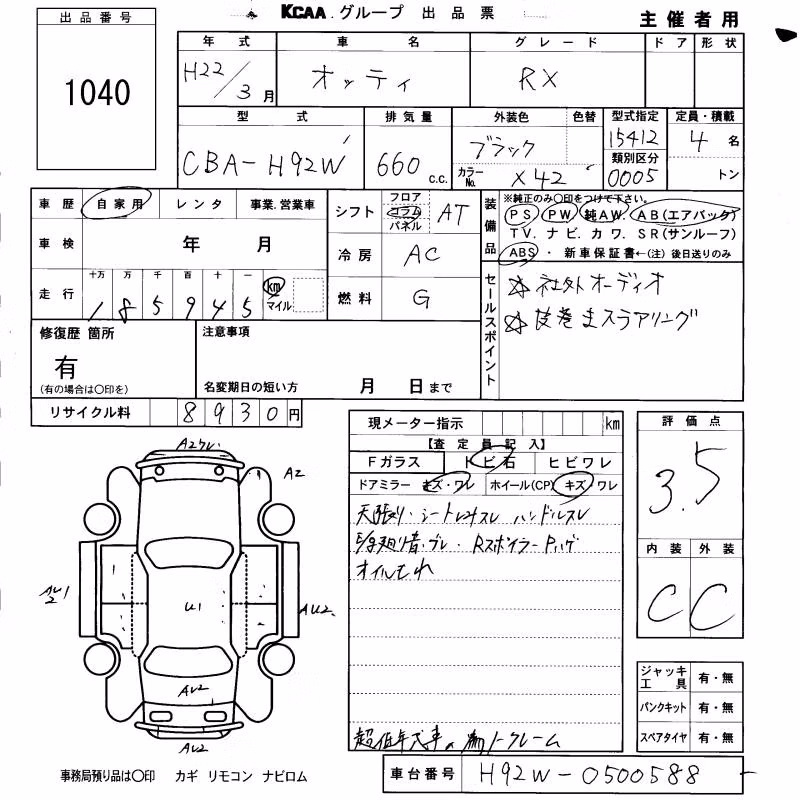 KCAA.グループ 出品票
主催者用
出品番号
1040
年式 車名 グレード ドア 形状
H22/3月 オッティ RX
型式 排気量 外装色 色替 型式指定 定員・積載
CBA-H92W 660 c.c. ブラック 15412 4名
カラーNo. X42 類別区分 0005 トン
車歴 自家用 レンタ 事業.営業車
車検 年 月
走行 十万 万 千 百 十 一
1 8 5 9 4 5 km マイル
シフト フロア コラム パネル AT
冷房 AC
燃料 G
装備品 ※純正のみ〇印をつけて下さい。
PS PW 純AW. AB(エアバック)
TV. ナビ. カワ. SR(サンルーフ)
ABS・新車保証書←(注)後日送りのみ
セールスポイント
☆ 社外オーディオ
☆ 皮巻きステアリング
修復歴 箇所
有
(有の場合は〇印を)
注意事項
名変期日の短い方 月 日まで
リサイクル料 8930円
現メーター指示 km
【査定員記入】
Fガラス トビ石 ヒビワレ
ドアミラー キズ・ワレ ホイール(CP) キズ ワレ
天張り・シートコゲスレ ハンドルスレ
ブレ・Rスポイラー Pハゲ
オイルもれ
超低年式車の為ノークレーム
評価点
3.5
内装 外装
C C
ジャッキ工具 有・無
パンクキット 有・無
スペアタイヤ 有・無
A2
U1
AU2.
AU2
AU2
事務局預り品は〇印 カギ リモコン ナビロム
車台番号 H92W-0500588